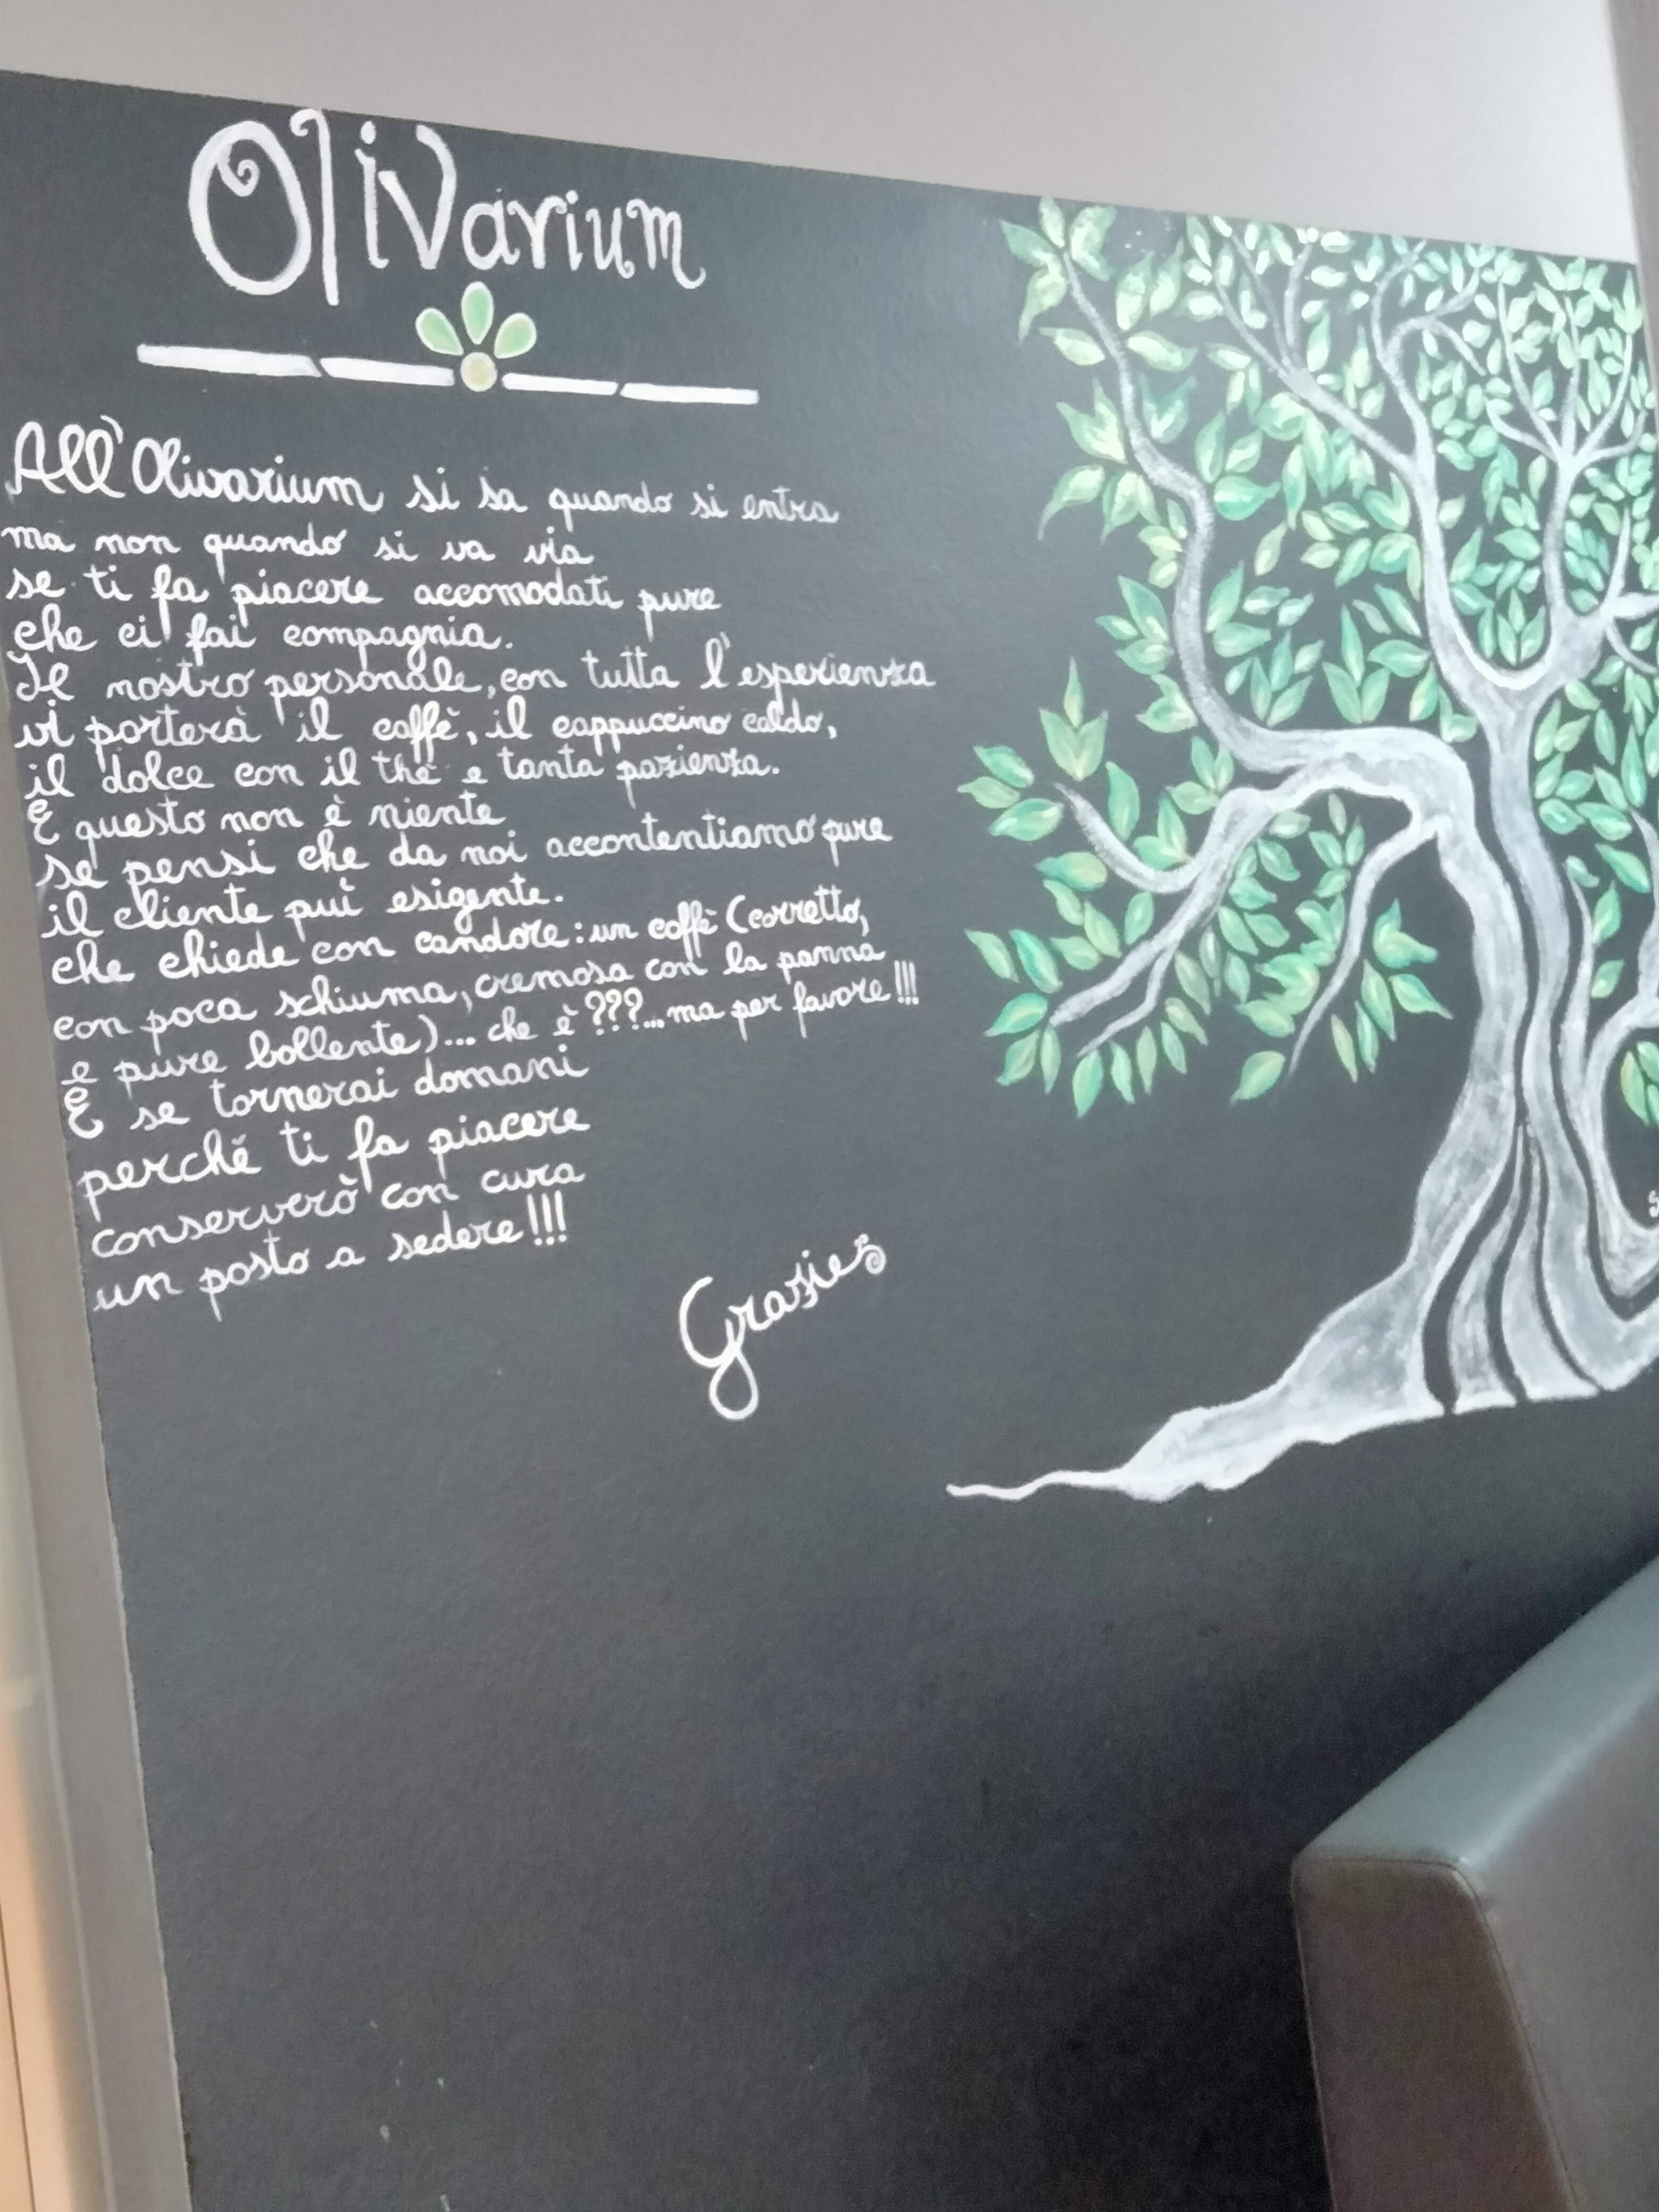 Olivarium
All'Olivarium si sa quando si entra
ma non quando si va via
se ti fa piacere accomodati pure
che ci fai compagnia.
Il nostro personale, con tutta l'esperienza
vi porterà il caffè, il cappuccino caldo,
il dolce con il thè e tanta pazienza.
E questo non è niente
se pensi che da noi accontentiamo pure
il cliente puì esigente.
che chiede con candore: un caffè (corretto,
con poca schiuma, cremosa con la panna
e pure bollente)... che è ???... ma per favore!!!
E se tornerai domani
perché ti fa piacere
conserverò con cura
un posto a sedere!!!
Grazie